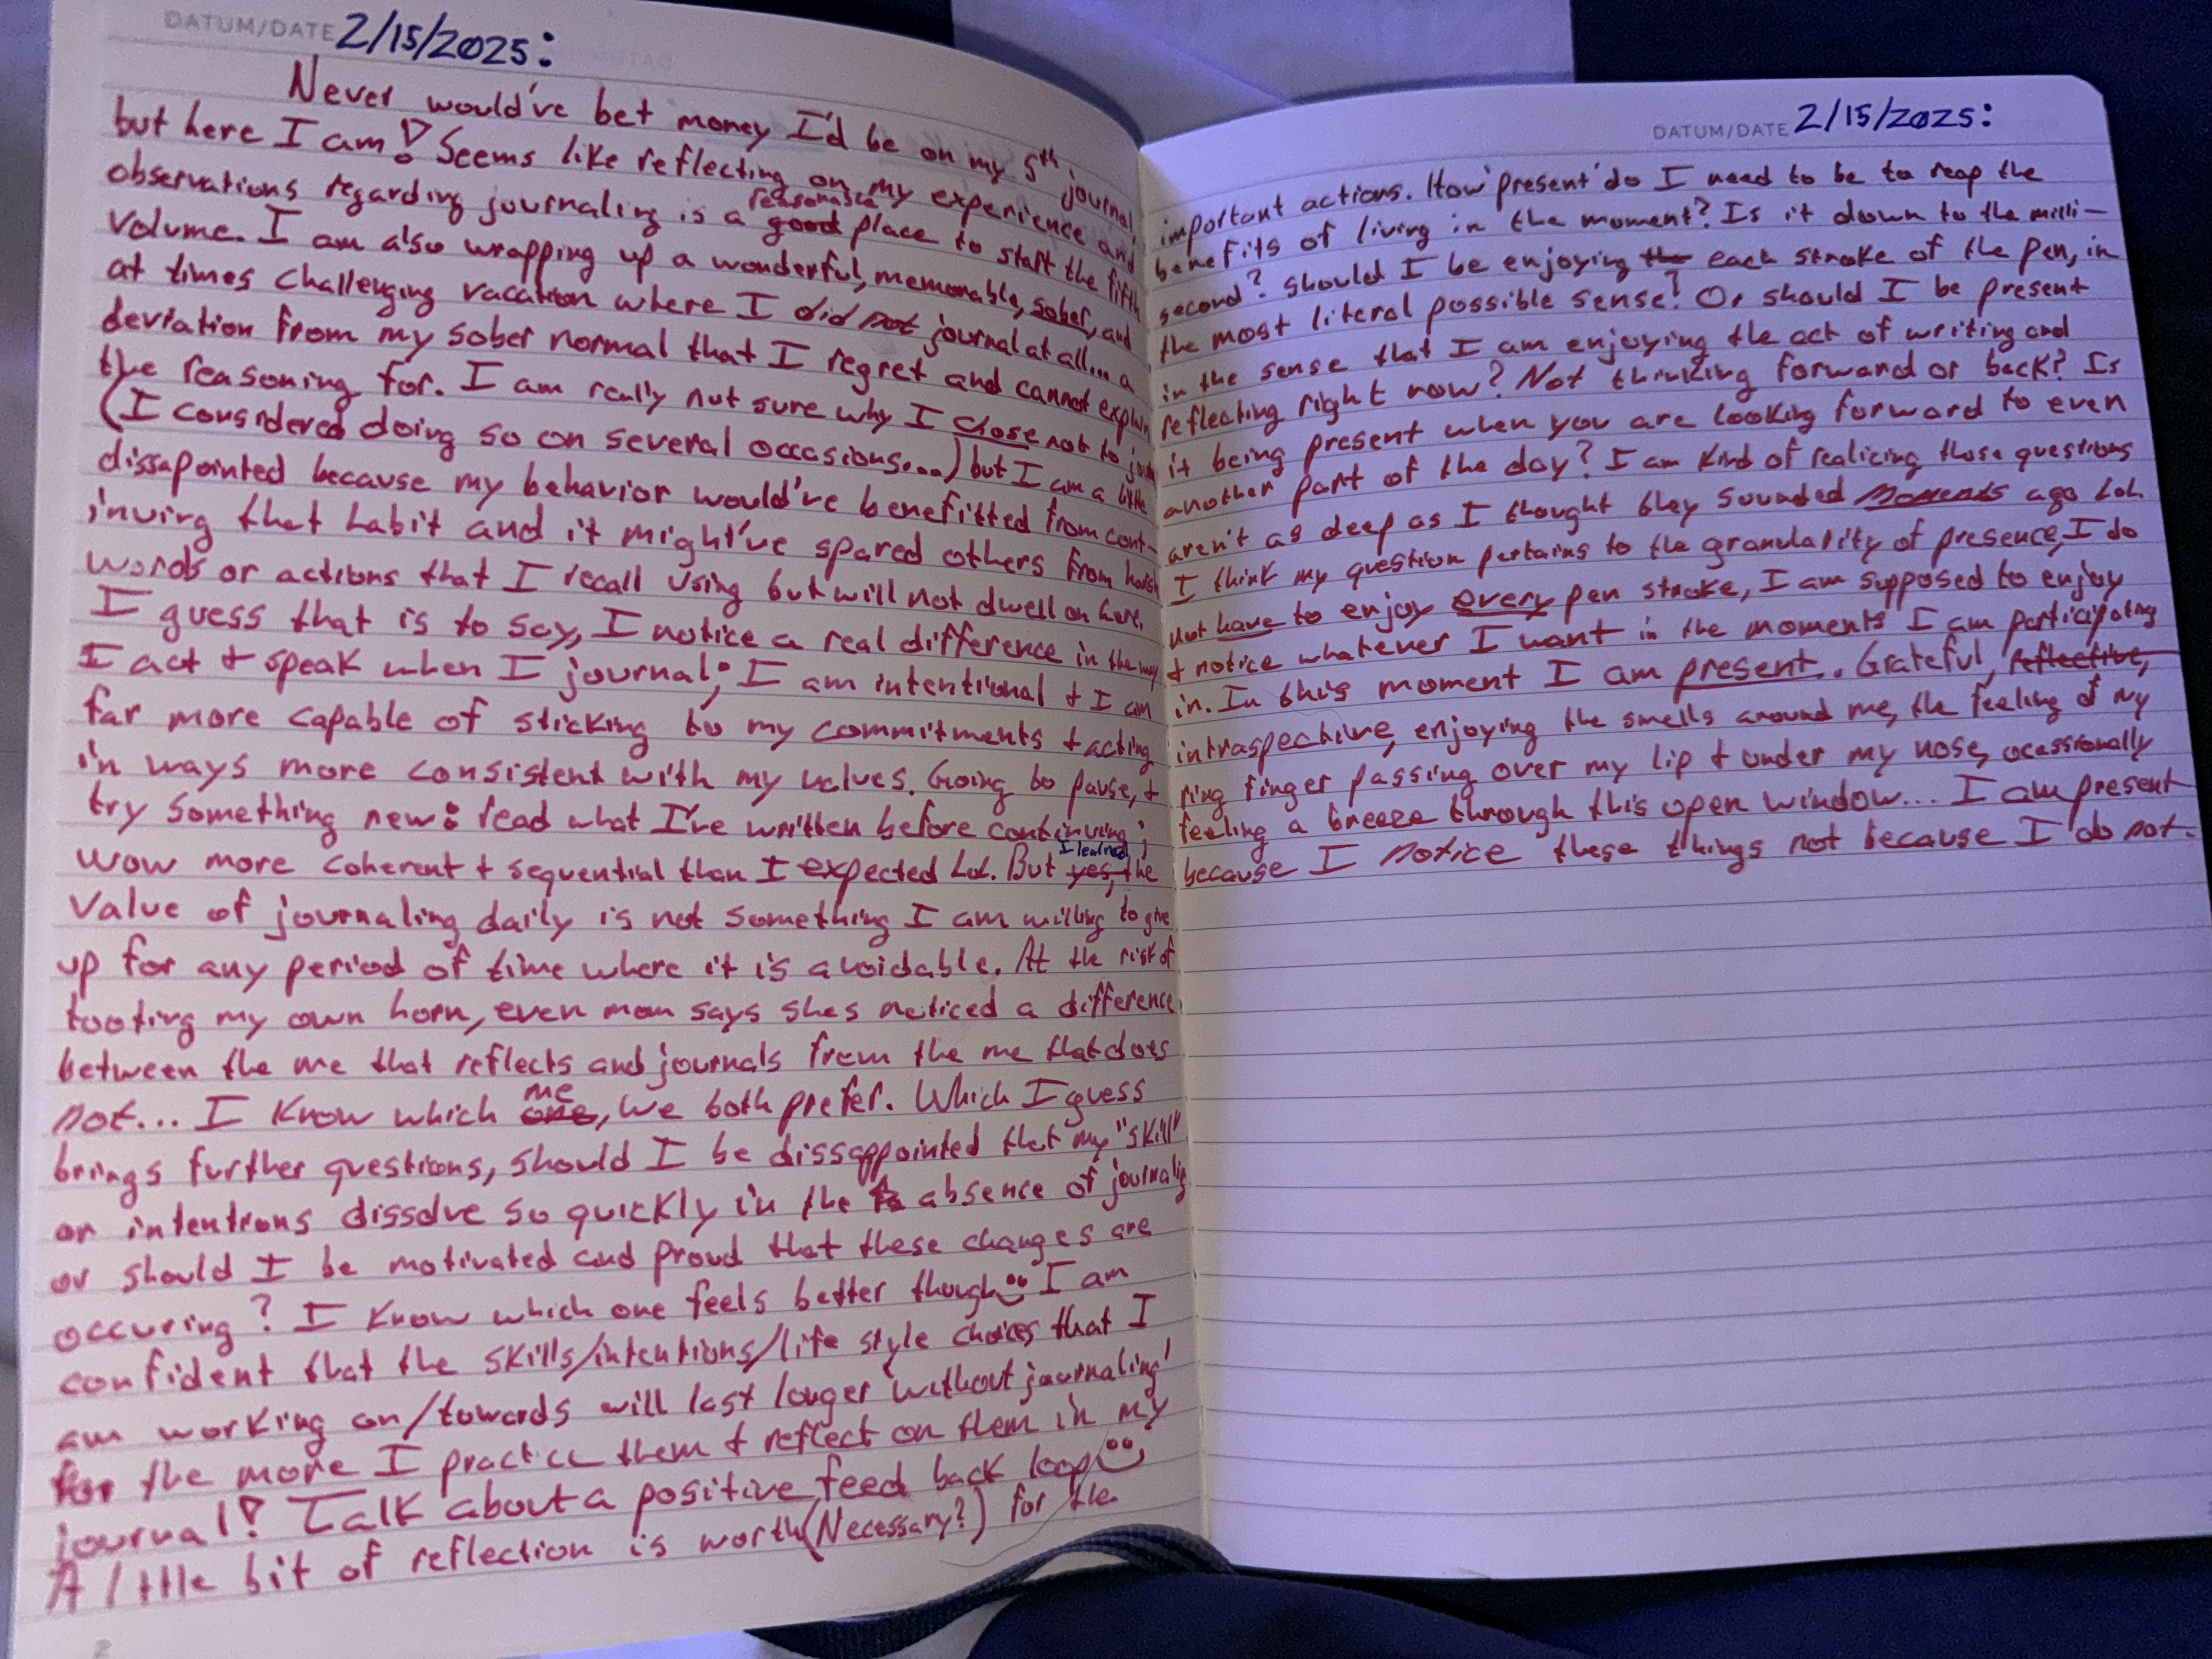 DATUM/DATE 2/15/2025:
Never would've bet money I'd be on my 5th journal
but here I am! Seems like reflecting on my experience and
observations regarding journaling is a reasonable good place to start the fifth
volume. I am also wrapping up a wonderful, memorable, sober, and
at times challenging vacation where I did not journal at all... a
deviation from my sober normal that I regret and cannot explain
the reasoning for. I am really not sure why I chose not to
(I considered doing so on several occasions...) but I am a little
dissapointed because my behavior would've benefitted from cont-
inuing that habit and it might've spared others from
words or actions that I recall using but will not dwell on here.
I guess that is to say, I notice a real difference in the way
I act + speak when I journal; I am intentional + I am
far more capable of sticking to my commitments + acting
in ways more consistent with my values. Going to pause, +
try something new: read what I've written before continuing.
Wow more coherent + sequential than I expected lol. But yes, the I learned
value of journaling daily is not something I am willing to give
up for any period of time where it is avoidable. At the risk of
tooting my own horn, even mom says shes noticed a difference
between the me that reflects and journals from the me that does
not... I know which one, me we both prefer. Which I guess
brings further questions, should I be dissappointed that my "skill"
or intentions dissolve so quickly in the absence of journaling
or should I be motivated and proud that these changes are
occuring? I know which one feels better though :) I am
confident that the skills/intentions/life style choices that I
am working on/towards will last longer without 'journaling'
for the more I practice them + reflect on them in my
journal! Talk about a positive feed back loop :)
A little bit of reflection is worth/(Necessary?) for the
DATUM/DATE 2/15/2025:
important actions. How 'present' do I need to be to reap the
benefits of living in the moment? Is it down to the milli-
second? Should I be enjoying the each stroke of the pen, in
the most literal possible sense? Or should I be present
in the sense that I am enjoying the act of writing and
reflecting right now? Not thinking forward or back? Is
it being present when you are looking forward to even
another part of the day? I am kind of realizing these questions
aren't as deep as I thought they sounded moments ago lol.
I think my question pertains to the granularity of presence, I do
not have to enjoy every pen stroke, I am supposed to enjoy
+ notice whatever I want in the moments I am participating
in. In this moment I am present. Grateful, reflective,
intraspective, enjoying the smells around me, the feeling of my
ring finger passing over my lip + under my nose, occassionally
feeling a breeze through this open window... I am present
because I notice these things not because I do not.